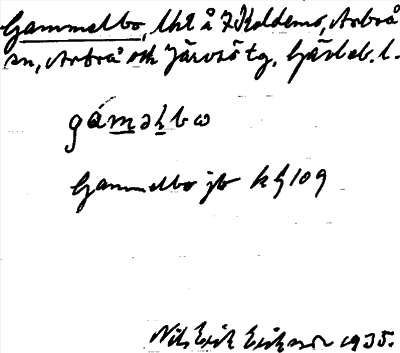 Gammelbo, lht å 7 Koldemo, Arbrå
sn, Arbrå och Järvsö tg, Gävleb. l.
gáməlbω
Gammelbo jb k G 109
Nils Erik Eriksson 1935.